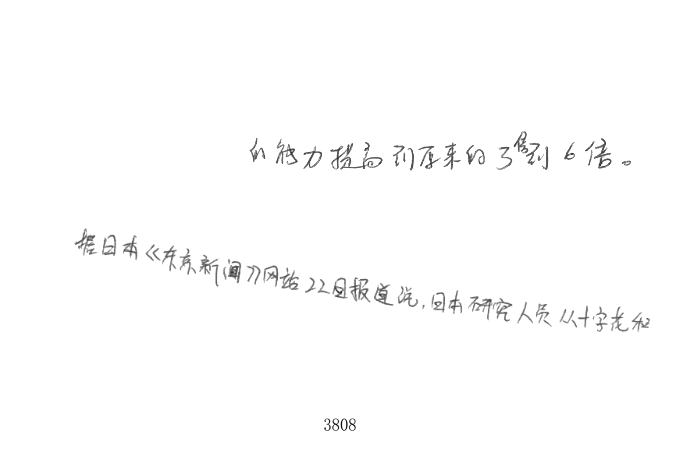 的能力提高到原来的3倍到6倍。
据日本《东京新闻》网站22日报道说,日本研究人员从十字花和
3808